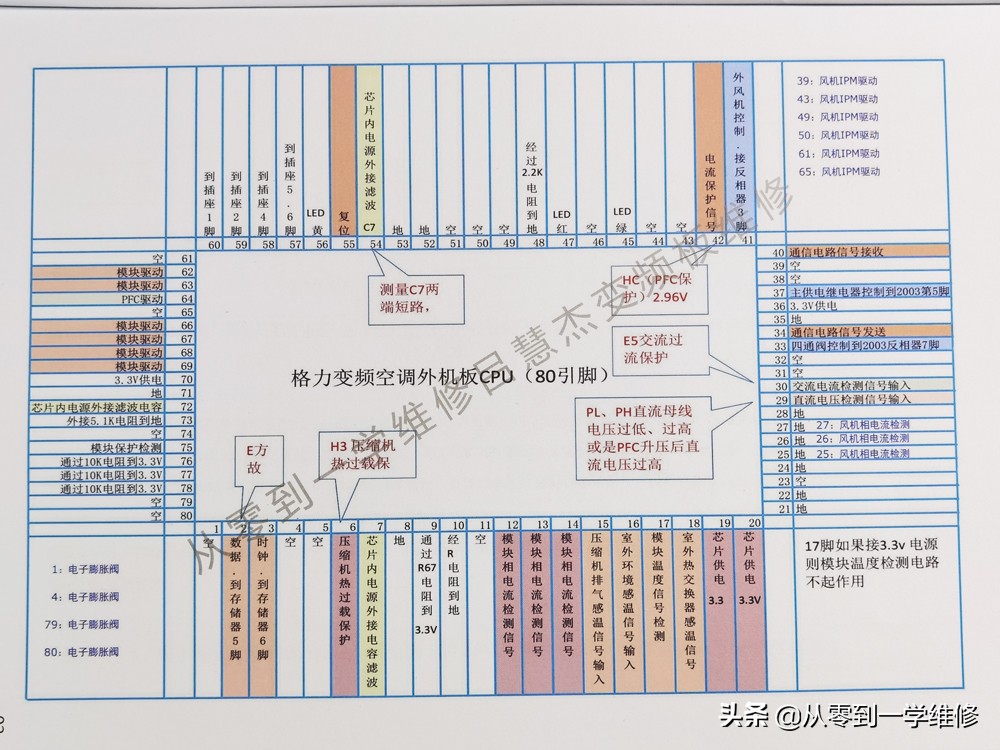 到插座1脚
到插座2脚
到插座4脚
到插座5.6脚
LED黄
复位
芯片内电源外接滤波 C7
地
地
空
空
空
经过2.2K电阻到地
LED红
空
LED绿
空
空
电流保护信号
外风机控制.接反相器3脚
60 59 58 57 56 55 54 53 52 51 50 49 48 47 46 45 44 43 42 41
39：风机IPM驱动
43：风机IPM驱动
49：风机IPM驱动
50：风机IPM驱动
61：风机IPM驱动
65：风机IPM驱动
空 61
模块驱动 62
模块驱动 63
PFC驱动 64
空 65
模块驱动 66
模块驱动 67
模块驱动 68
模块驱动 69
3.3V供电 70
地 71
芯片内电源外接滤波电容 72
外接5.1K电阻到地 73
空 74
模块保护检测 75
通过10K电阻到3.3V 76
通过10K电阻到3.3V 77
通过10K电阻到3.3V 78
空 79
空 80
测量C7两
端短路，
HC（PFC保
护）2.96V
E5交流过
流保护
格力变频空调外机板CPU（80引脚）
PL、PH直流母线
电压过低、过高
或是PFC升压后直
流电压过高
E方
故
H3 压缩机
热过载保
40 通信电路信号接收
39 空
38 空
37 主供电继电器控制到2003第5脚
36 3.3V供电
35 地
34 通信电路信号发送
33 四通阀控制到2003反相器7脚
32 空
31 空
30 交流电流检测信号输入
29 直流电压检测信号输入
28 地
27 地 27：风机相电流检测
26 地 26：风机相电流检测
25 地 25：风机相电流检测
24 地
23 空
22 地
21 地
1 2 3 4 5 6 7 8 9 10 11 12 13 14 15 16 17 18 19 20
空
数据.到存储器5脚
时钟.到存储器6脚
空
空
压缩机热过载保护
芯片内电源外接电容滤波
地
通过R67电阻到3.3V
经R电阻到地
空
模块相电流检测信号
模块相电流检测信号
模块相电流检测信号
压缩机排气感温信号输入
室外环境感温信号输入
模块温度信号检测
室外热交换器感温信号
芯片供电 3.3
芯片供电 3.3V
1：电子膨胀阀
4：电子膨胀阀
79：电子膨胀阀
80：电子膨胀阀
17脚如果接3.3v 电源
则模块温度检测电路
不起作用
从零到一学维修吕慧杰变频板维修
头条 @从零到一学维修